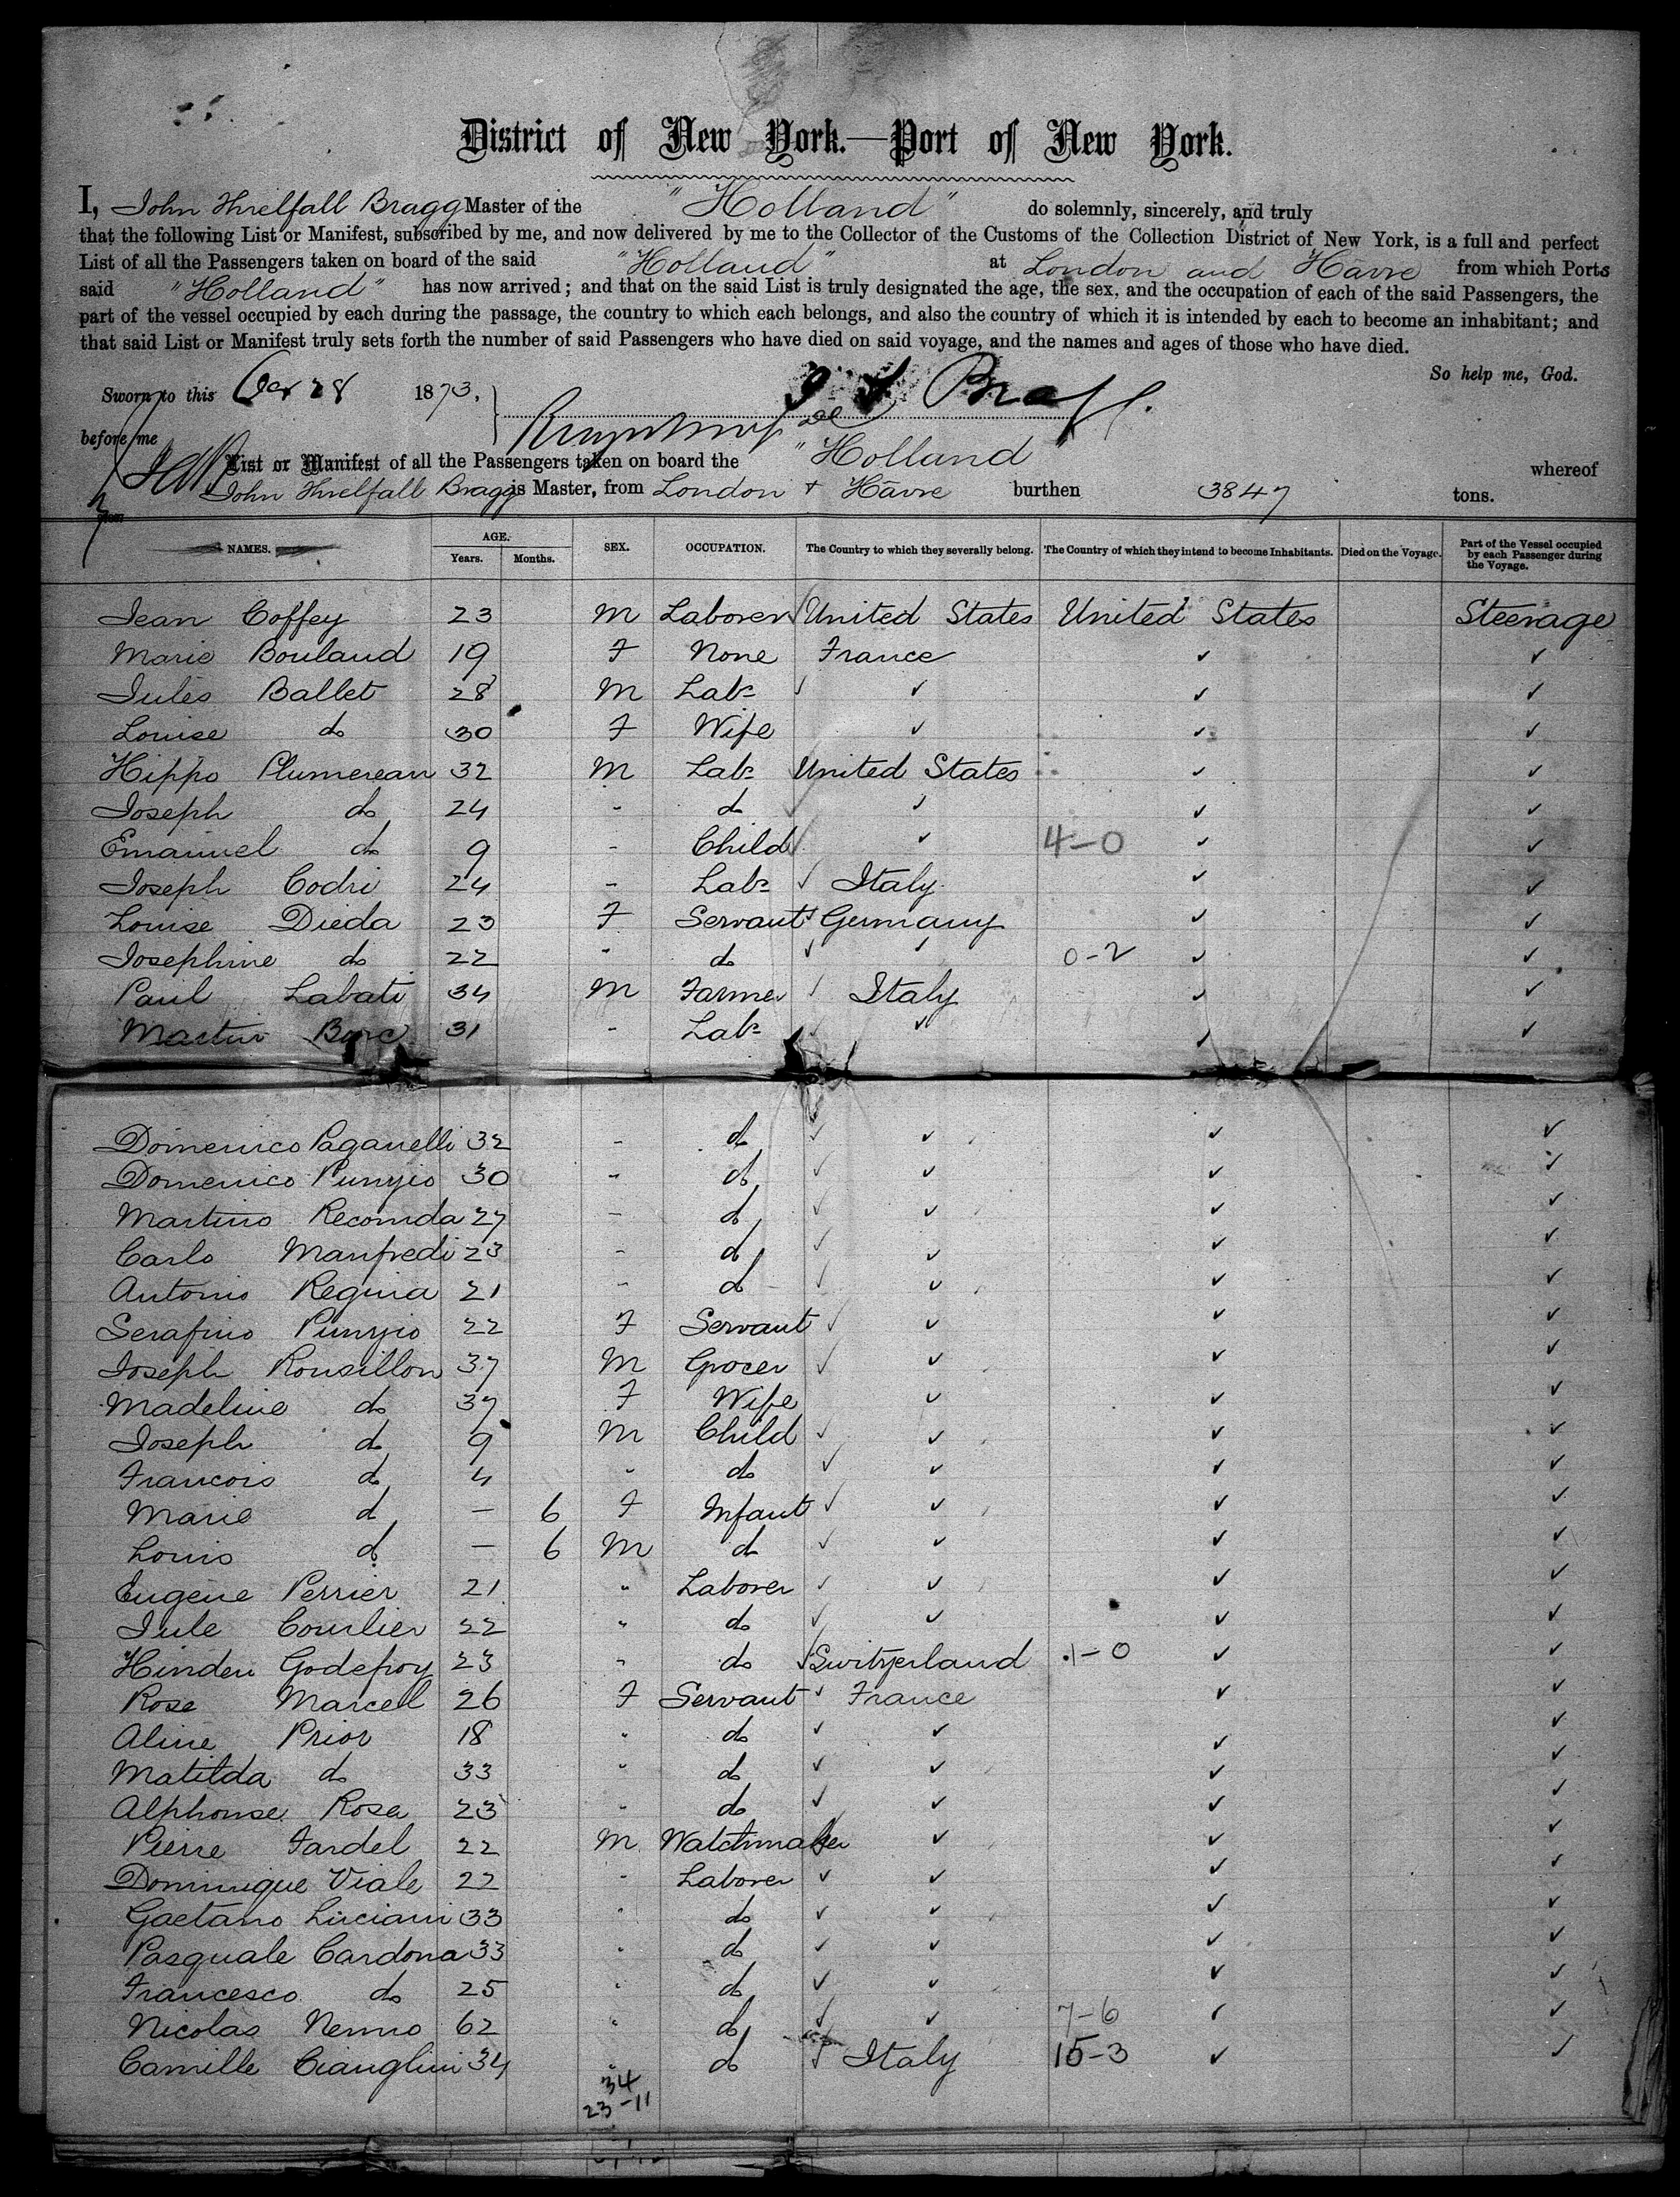 District of New York.—Port of New York.
I, John Threlfall Bragg Master of the "Holland" do solemnly, sincerely, and truly
that the following List or Manifest, subscribed by me, and now delivered by me to the Collector of the Customs of the Collection District of New York, is a full and perfect
List of all the Passengers taken on board of the said "Holland" at London and Hâvre from which Ports
said "Holland" has now arrived; and that on the said List is truly designated the age, the sex, and the occupation of each of the said Passengers, the
part of the vessel occupied by each during the passage, the country to which each belongs, and also the country of which it is intended by each to become an inhabitant; and
that said List or Manifest truly sets forth the number of said Passengers who have died on said voyage, and the names and ages of those who have died.
So help me, God.
Sworn to this Oct 28 1873, J T Bragg
before me
List or Manifest of all the Passengers taken on board the "Holland" whereof
John Threlfall Bragg is Master, from London + Hâvre burthen 3847 tons.
NAMES. AGE. Years. Months. SEX. OCCUPATION. The Country to which they severally belong. The Country of which they intend to become Inhabitants. Died on the Voyage. Part of the Vessel occupied by each Passenger during the Voyage.
Jean Coffey 23 M Laborer ✓ United States United States Steerage
Marie Bouland 19 F None France ✓ ✓
Jules Ballet 28 M Labr ✓ ✓ ✓ ✓
Louise do 30 F Wife ✓ ✓ ✓
Hippo Plumereau 32 M Labr United States ✓ ✓
Joseph do 24 " do ✓ ✓ ✓ ✓
Emanuel do 9 " Child ✓ ✓ 4-0 ✓ ✓
Joseph Codri 24 " Labr ✓ Italy ✓ ✓
Louise Dieda 23 F Servant ✓ Germany ✓ ✓
Josephine do 22 " do ✓ ✓ 0-2 ✓ ✓
Paul Labati 34 M Farmer ✓ Italy ✓ ✓
Martin 31 " Labr ✓ ✓ ✓ ✓
Domenico Paganelli 32 " do ✓ ✓ ✓ ✓
Domenico Punzio 30 " do ✓ ✓ ✓ ✓
Martino Recomda 27 " do ✓ ✓ ✓ ✓
Carlo Manfredi 23 " do ✓ ✓ ✓ ✓
Antonio Regina 21 " do ✓ ✓ ✓ ✓
Serafino Punzio 22 F Servant ✓ ✓ ✓ ✓
Joseph Rousillon 37 M Grocer ✓ ✓ ✓ ✓
Madeline do 37 F Wife ✓ ✓ ✓
Joseph do 9 M Child ✓ ✓ ✓ ✓
Francois do 4 " do ✓ ✓ ✓ ✓
Marie do — 6 F Infant ✓ ✓ ✓ ✓
Louis do — 6 M do ✓ ✓ ✓ ✓
Eugene Perrier 21 " Laborer ✓ ✓ ✓ ✓
Jule Courlier 22 " do ✓ ✓ ✓ ✓
Hinden Godefroy 23 " do ✓ Switzerland 1-0 ✓ ✓
Rose Marcell 26 F Servant ✓ France ✓ ✓
Aline Prior 18 " do ✓ ✓ ✓ ✓
Matilda do 33 " do ✓ ✓ ✓ ✓
Alphonse Rosa 23 " do ✓ ✓ ✓ ✓
Pierre Fardel 22 M Watchmaker ✓ ✓ ✓
Dominique Viale 22 " Laborer ✓ ✓ ✓ ✓
Gaetano Luciani 33 " do ✓ ✓ ✓ ✓
Pasquale Cardona 33 " do ✓ ✓ ✓ ✓
Francesco do 25 " do ✓ ✓ ✓ ✓
Nicolas Nemno 62 " do ✓ ✓ 7-6 ✓ ✓
Camille Cianglini 34 " do ✓ Italy 15-3 ✓ ✓
34
23-11